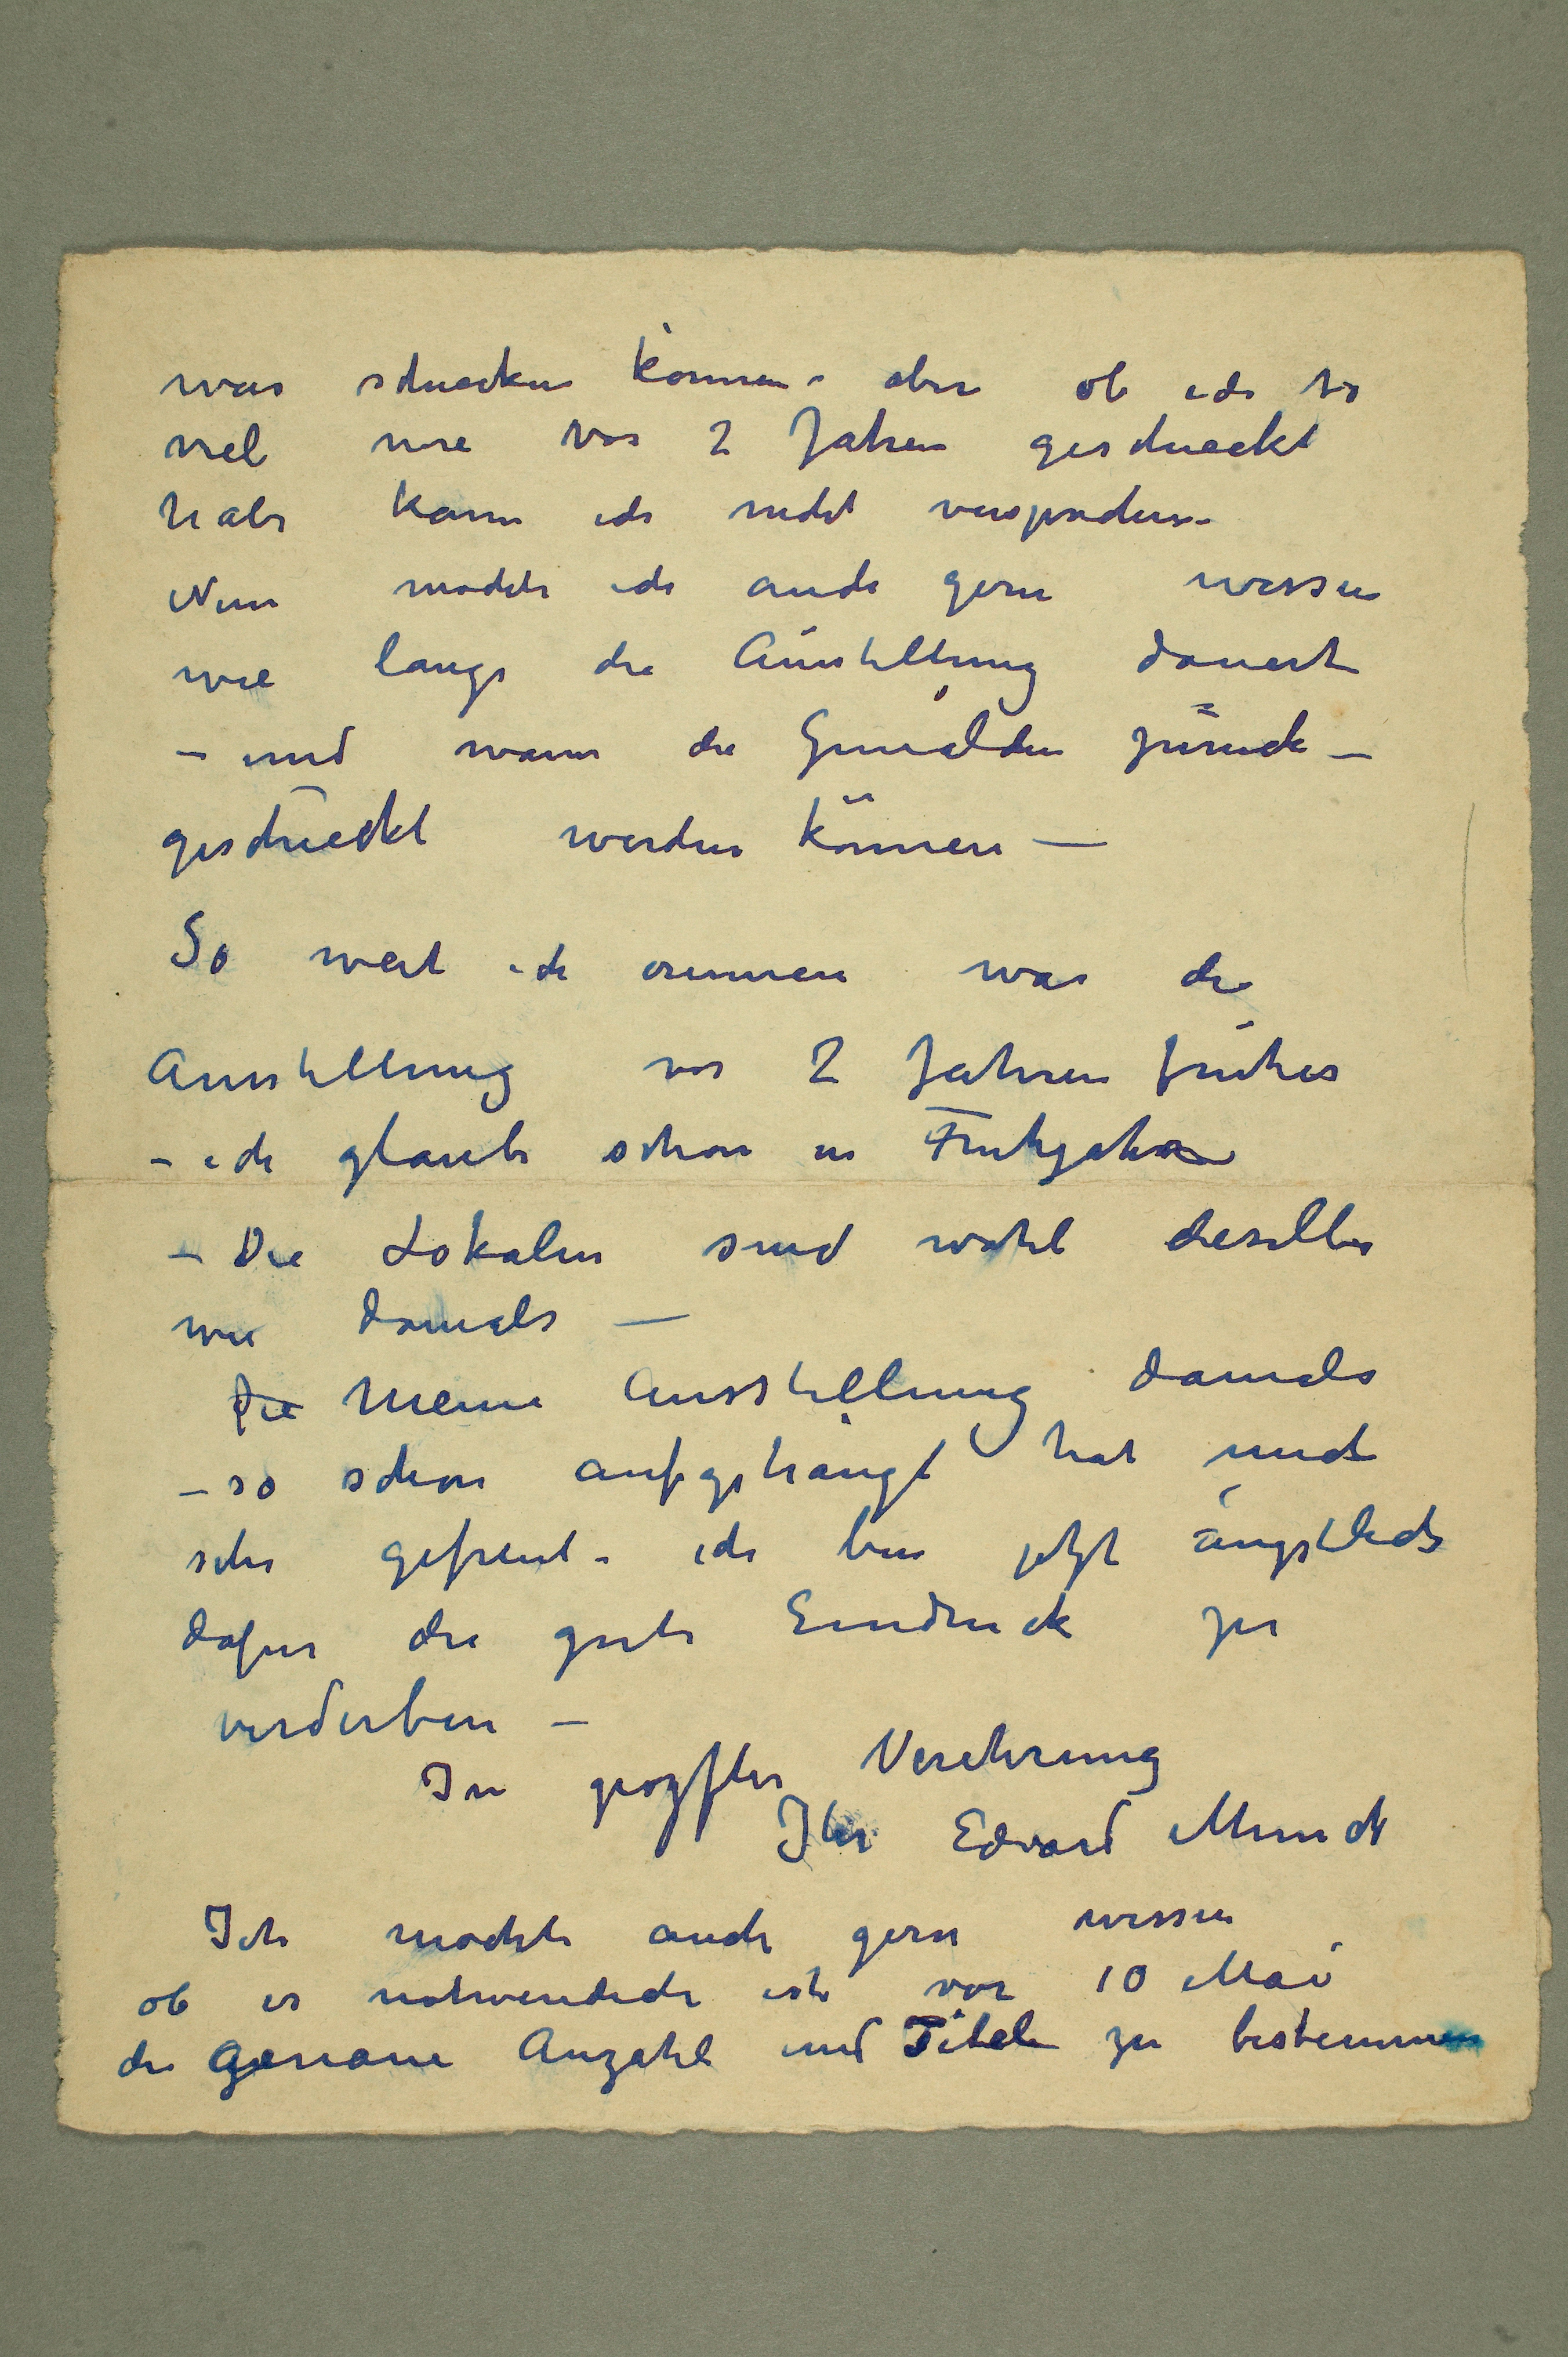 was schiecken können – aber ob ich so
viel wie vor 2 Jahren geschieckt
habe kann ich nicht versprechen –
Nun möchte ich auch gern wissen
wie lange die Ausstellung dauert
– und wann die Gemälden zurück –
geschieckt werden können —
So weit ich erinnere war die
Ausstellung vor 2 Jahren früher
– ich glaube schon in Fruhjahr
– Die Lokalen sind wohl dieselben
wie damals —
Die Meine Ausstellung damals
– so schon aufgehängt hat mich
sehr gefreut – ich bin jetzt ängstlich
dafur die gute Eindruck zu
verderben –
In grozster Verehrung
Ihr Edvard Munch
Ich mochte auch gern wissen
ob es notwendich ist vor 10 Mai
die genaue Anzahl und Titeln zu bestemmen